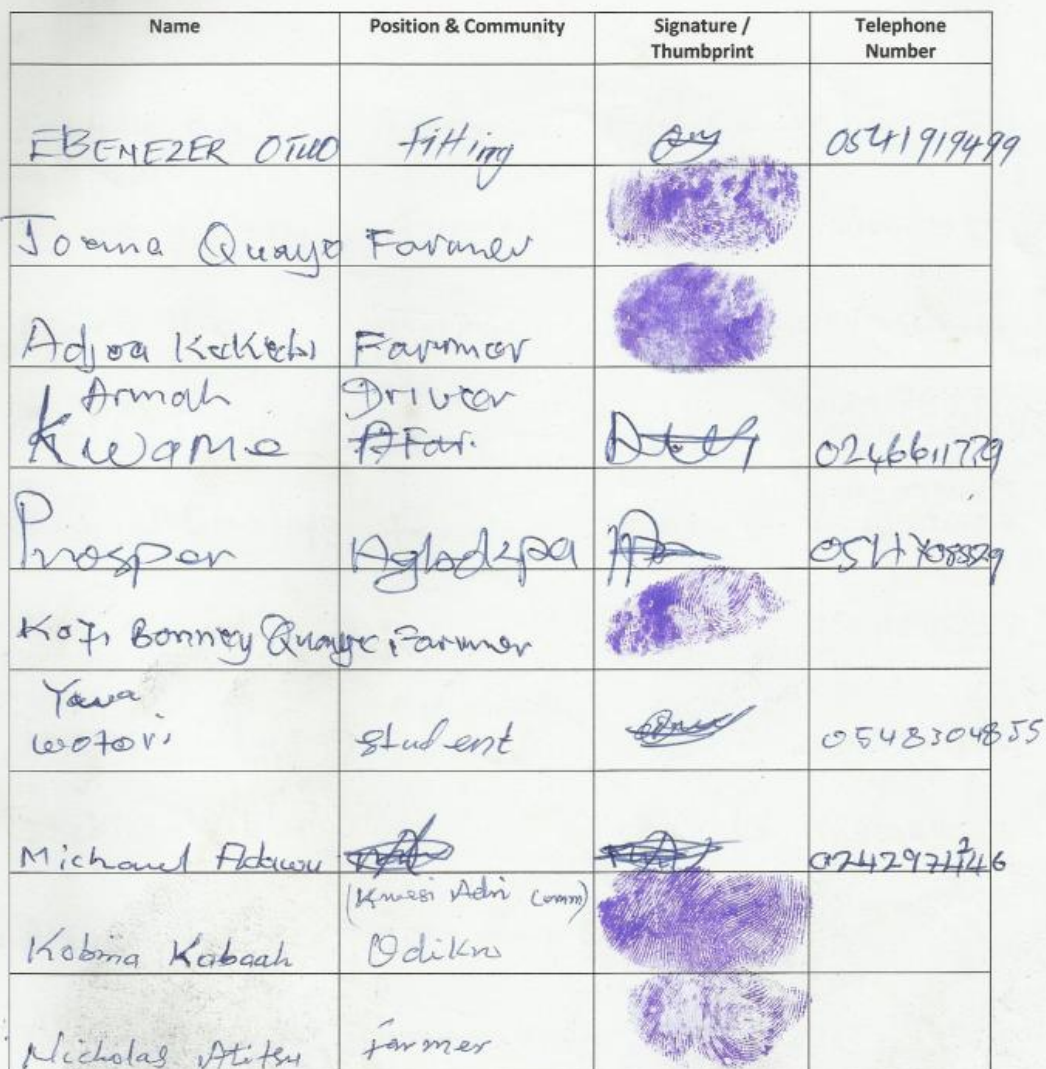 Name Position & Community Signature / Thumbprint Telephone Number
EBENEZER OTUO Fitting 0541919499
Joana Quaye Farmer
Adjoa Farmer
Armah Driver
Kwame 0246611779
Prosper Agbodzpa
Kofi Bonney Quaye Farmer
Yawa
wotovi student 0548304855
Michael
(Kwesi Adri Comm)
Kobina Kabaah Odikro
Nicholas Atitsu farmer